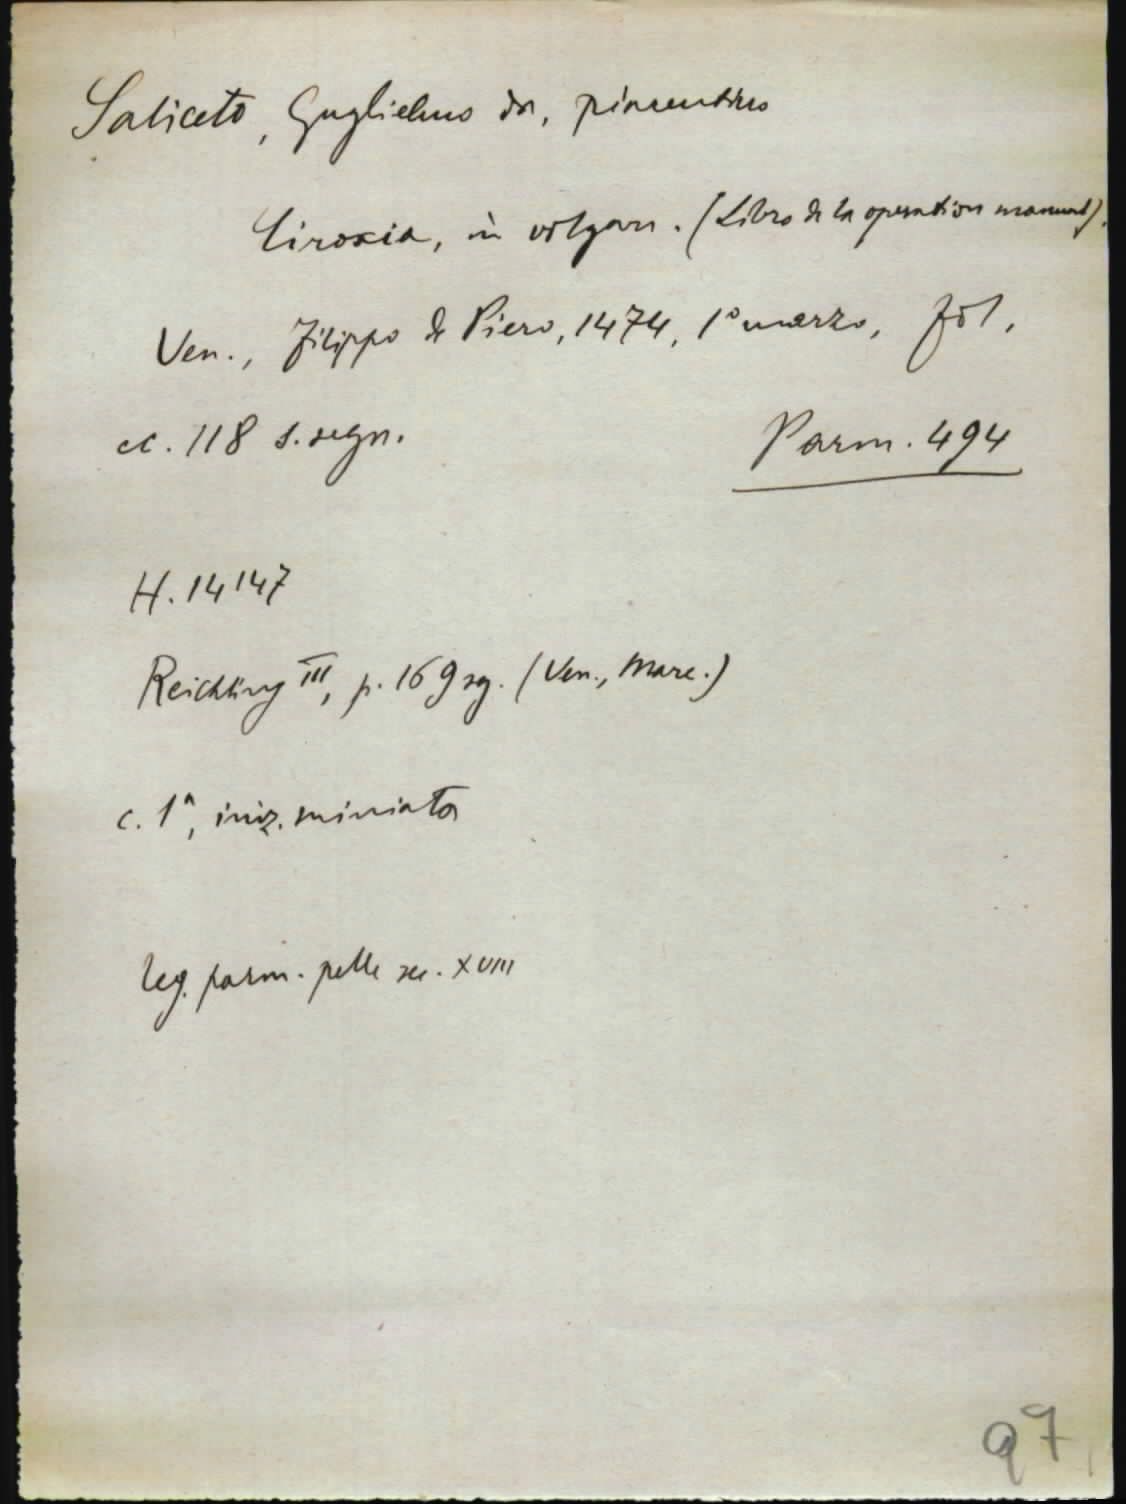 Saliceto, Guglielmo da, piacentino
Ciroxia, in volgare. (Libro de la operation manual).
Ven., Filippo de Piero, 1474, 1° marzo, fol.
cc. 118 s. segn.
Parm. 494
H. 14147
Reichling III, p. 169 sg. (Ven., Marc.)
c. 1ª, iniz. miniata
leg. parm. pelle sec. XVIII
97